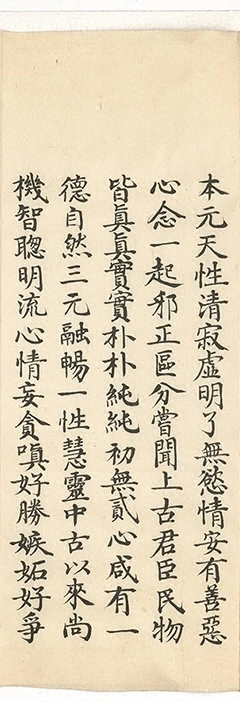 本元天性清寂虛明了無慾情安有善惡
心念一起邪正區分嘗聞上古君臣民物
皆眞眞實實朴朴純純初無貳心咸有一
德自然三元融暢一性慧靈中古以來尚
機智聰明流心情妄貪嗔好勝嫉妬好爭